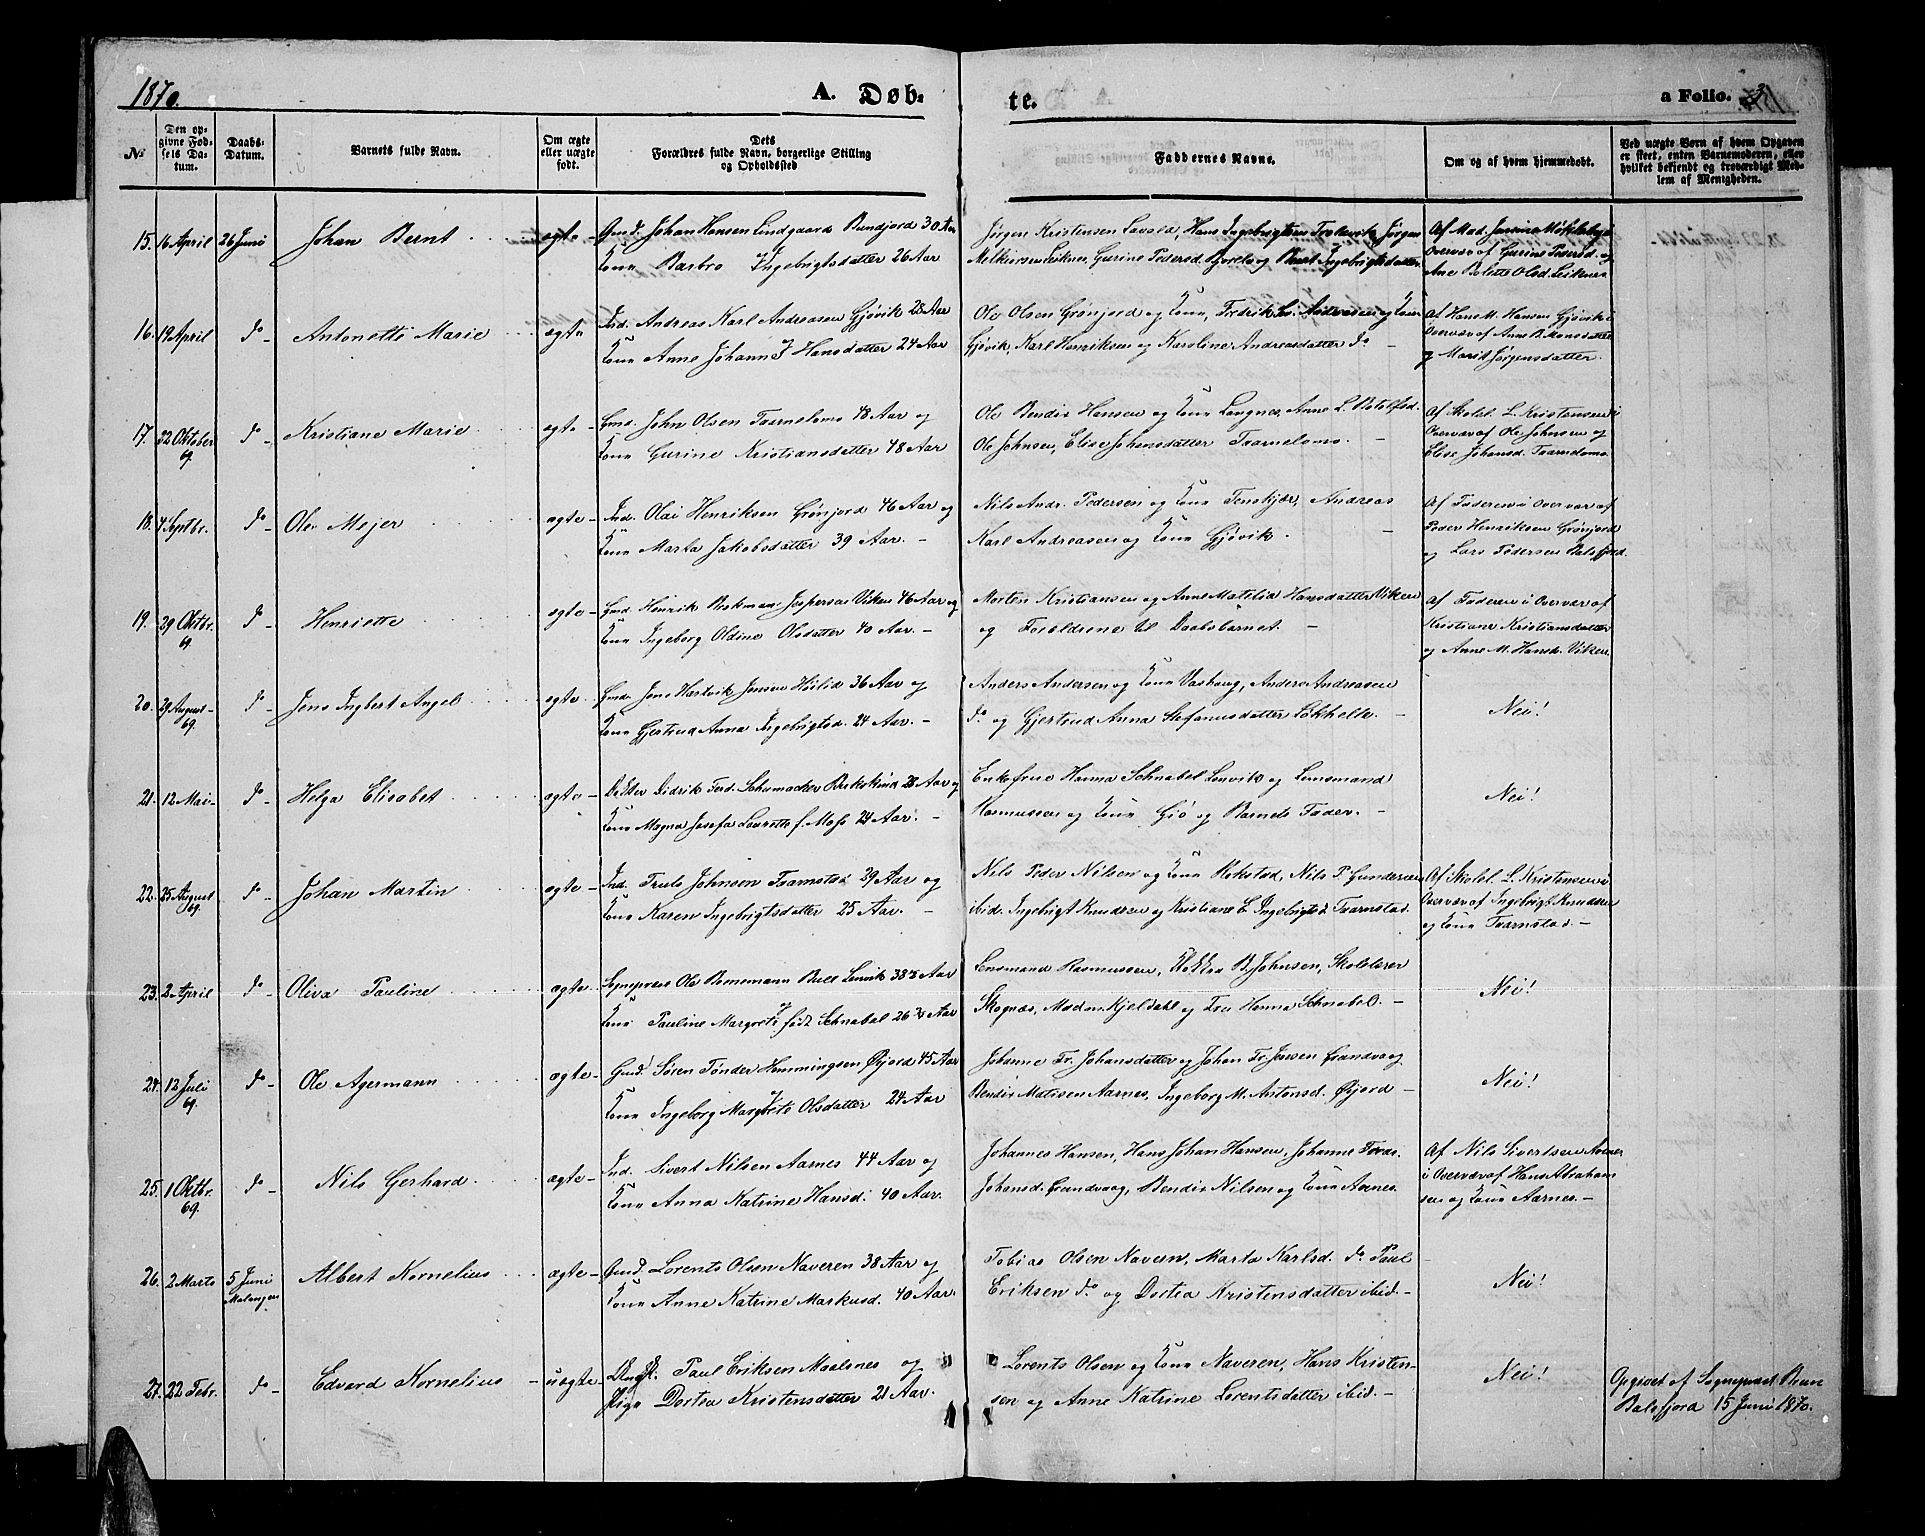 1870.
A. Døb-
te.
a Folio.
№
Den op-
givne Fød-
sels Da-
tum.
Daabs-
Datum.
Barnets fulde Navn.
Om ægte
eller uægte
født.
Dets
Forældres fulde Navn, borgerlige Stilling
og Opholdssted
Faddernes Navne.
Om og af hvem hjemmedøbt.
Ved uægte Børn af hvem Opgaven
er skeet, enten Barnemoderen, eller
hvilket bekjendt og troværdigt Med-
lem af Menigheden.
15. 16 April 26 Juni Johan Bernt ægte
Gmd. Johan Hansen Lindgaard Bundjord 30 Aar
Kone Barbro Ingebrigtsdatter 26 Aar
Jørgen Kristensen Hans Ingebrigtsen Jørgen
Leiknes, Gurine Pedersd. og Ingebrigtsdatter
Af Mad.
Overvær af Gurine Pedersd. og
Ane Bolette Olsd. Leiknes.
16. 19 April do Antonette Marie ægte
Ind. Andreas Karl Andreasen Gjøvik 28 Aar
Kone Anne Johanne J Hansdatter 24 Aar
Ole Olsen Grønjord og Kone, Fredrik Andreasen og Kone
Gjøvik, Karl Henriksen og Karoline Andreasdatter do
Af Hans M. Hansen Gjøvik i
Overvær af Anne B. Hansdatter
og Marit Jørgensdatter.
17. 22 Oktober 69. do Kristiane Marie ægte
Gmd. John Olsen Taarnelomo 48 Aar og
Kone Gurine Kristiansdatter 48 Aar
Ole Bendix Hansen og Kone Langnes, Anne L. Botolfsd.
Ole Johnsen, Elise Johansdatter Taarnelomo.
Af Skolel. L. Kristensen i
Overvær af Ole Johnsen og
Elise Johansd. Taarnelomo
18. 4 Septbr. do Ole Mejer ægte
Ind. Olai Henriksen Grønjord 46 Aar og
Kone Marta Jakobsdatter 39 Aar.
Nils Andr. Pedersen og Kone Tenskjær, Andreas
Karl Andreasen og Kone Gjøvik.
Af Faderen i Overvær af
Peder Henriksen Grønjord
og Lars Pedersen Balsfjord.
19. 29 Oktbr. 69. do Henriette ægte
Gmd. Henrik Bekman Jespersen Viken 46 Aar og
Kone Ingeborg Oldine Olsdatter 40 Aar.
Morten Kristiansen og Anne Matilde Hansdatter Viken
og Forældrene til Daabsbarnet.
Af Faderen i Overvær af
Kristiane Kristiansdatter
og Anne M. Hansd. Viken.
20. 29 August 69. do Jens Ingbert Angel ægte
Gmd. Jens Hartvik Jensen Høilid 36 Aar og
Kone Gjertrud Anna Ingebrigtsd. 24 Aar.
Anders Andersen og Kone Vashaug, Anders Andreasen
do og Gjertrud Anna Stefanusdatter
Nei!
21. 12 Mai do Helga Elisabet ægte
Didrik Ferd. Schumacker 28 Aar og
Kone Magna Josefa Laurette f. Moss 24 Aar.
Enkefrue Hanna Schnabel Lenvik og Lensmand
Rasmussen og Kone Giø og Barnets Fader.
Nei!
22. 25 August 69. do Johan Martin ægte
Ind. Truls Johnsen Taarnstad 29 Aar og
Kone Karen Ingebrigtsdatter 25 Aar.
Nils Peder Nilsen og Kone Rokstad, Nils P. Gundersen
ibid. Ingebrigt Knudsen og Kristiane E. Ingebrigtsd. Taarnstad.
Af Skolel. L. Kristensen i
Overvær af Ingebrigt Knudsen
og Kone Taarnstad.
23. 2 April do Oliva Pauline ægte
Sognepræst Ole Bornemann Bull Lenvik 38 Aar
Kone Pauline Margrete født Schnabel 26 Aar
Lensmand Rasmussen, B. Johnsen, Skolelærer
Skognæs, Madm. Kjeldahl og Fru Hanna Schnabel.
Nei!
24. 12 Juli 69. do Ole Agermann ægte
Gmd. Søren Tønder Hemmingsen Øijord 45 Aar
Kone Ingeborg Margrete Olsdatter 24 Aar
Johanne Fr. Johansdatter og Johan Fr. Jensen Grandvaag
Bendix Matisen Aarnes, Ingeborg M. Antonsd. Øijord
Nei!
25. 1 Oktbr. 69. do Nils Gerhard ægte
Ind. Sivert Nilsen Aarnes 44 Aar og
Kone Anna Katrine Hansd. 40 Aar.
Johannes Hansen, Hans Johan Hansen, Johanne
Johansd. Grandvaag, Bendix Nilsen og Kone Aarnes.
Af Nils Sivertsen Aarnes
i Overvær af Hans Abraham
sen og Kone Aarnes.
26. 2 Marts 5 Juni Malangen Albert Kornelius ægte
Gmd. Lorents Olsen Naveren 38 Aar og
Kone Anne Katrine Markusd. 40 Aar.
Tobias Olsen Navern, Marta Karlsd. do Paul
Eriksen do og Dortea Kristensdatter ibid.
Nei!
27. 22 Febr. do Edvard Kornelius uægte
Ungk. Paul Eriksen Maalsnes og
Pige Dortea Kristensdatter 21 Aar.
Lorents Olsen og Kone Naveren, Hans Kristen-
sen og Anne Katrine Lorentsdatter ibid.
Nei!
Opgivet af Sognepræst
Balsfjord 15 Juni 1870.